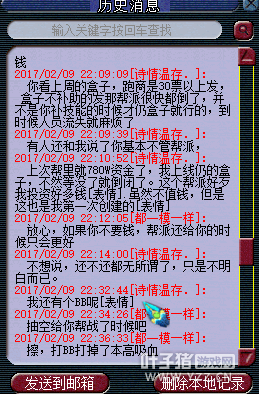 历史消息
输入关键字按回车查找
钱
2017/02/09 22:09:09[诗情温存．]：
你看上周的盒子，跑商是30票以上发，
盒子不补助的发那帮派很快都倒了，并
不是你补技能的时候才仍盒子就行的，到
时候人员流失就麻烦了
2017/02/09 22:09:39[诗情温存．]：
有人还和我说了你基本不管帮派，
2017/02/09 22:10:52[诗情温存．]：
上次帮里就780W资金了，我上线仍的盒
子，不然等没了就倒闭了。这个帮派好歹
我投资好多钱[表情]虽然不值钱，但是
这也是我第一次创建的[表情]
2017/02/09 22:12:05[都一模一样]：
放心，如果你不要钱，帮派还给你的时
候只会更好
2017/02/09 22:14:00[诗情温存．]：
不想说，还不还都无所谓了，只是不明
白而已。
2017/02/09 22:32:44[诗情温存．]：
我还有个BB呢[表情]
2017/02/09 22:34:26[都一模一样]：
抽空给你帮战了时候吧
2017/02/09 22:36:33[都一模一样]：
擦，打BB打掉了本高吸血
发送到邮箱
删除本地记录
叶子猪游戏网